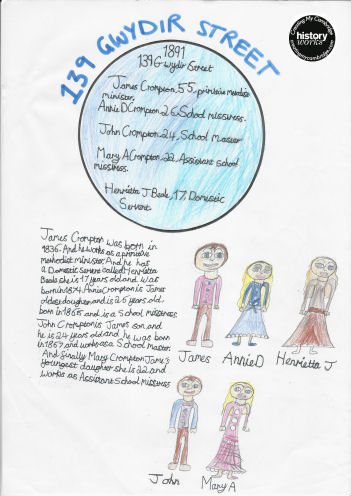 139 GWYDIR STREET
Creating My Cambridge
history
works
creatingmycambridge.com
1891
139 Gwydir Street
James Crompton, 55, primitive methodist
minister.
Annie D Crompton 26, School misstress.
John Crompton 24, School Master
Mary A Crompton, 22 Assistant school
misstress.
Henrietta J Beale, 17, Domestic
Servent.
James Crompton was born in
1836. And he works as a primitive
methodist minister. And he has
a Domestic Servent called Henrietta
Beale she is 17 years old and was
born in 1874. Annie Crompton is James
oldest daughter and is 26 years old
born in 1865 and is a School misstress
John Crompton is James son and
he is 24 years old and he was born
in 1867 and works as a School master.
And finally Mary Crompton Jame's
youngest daugher she is 22 and
works as Assistant School misstress
James
Annie D
Henrietta J
John
Mary A